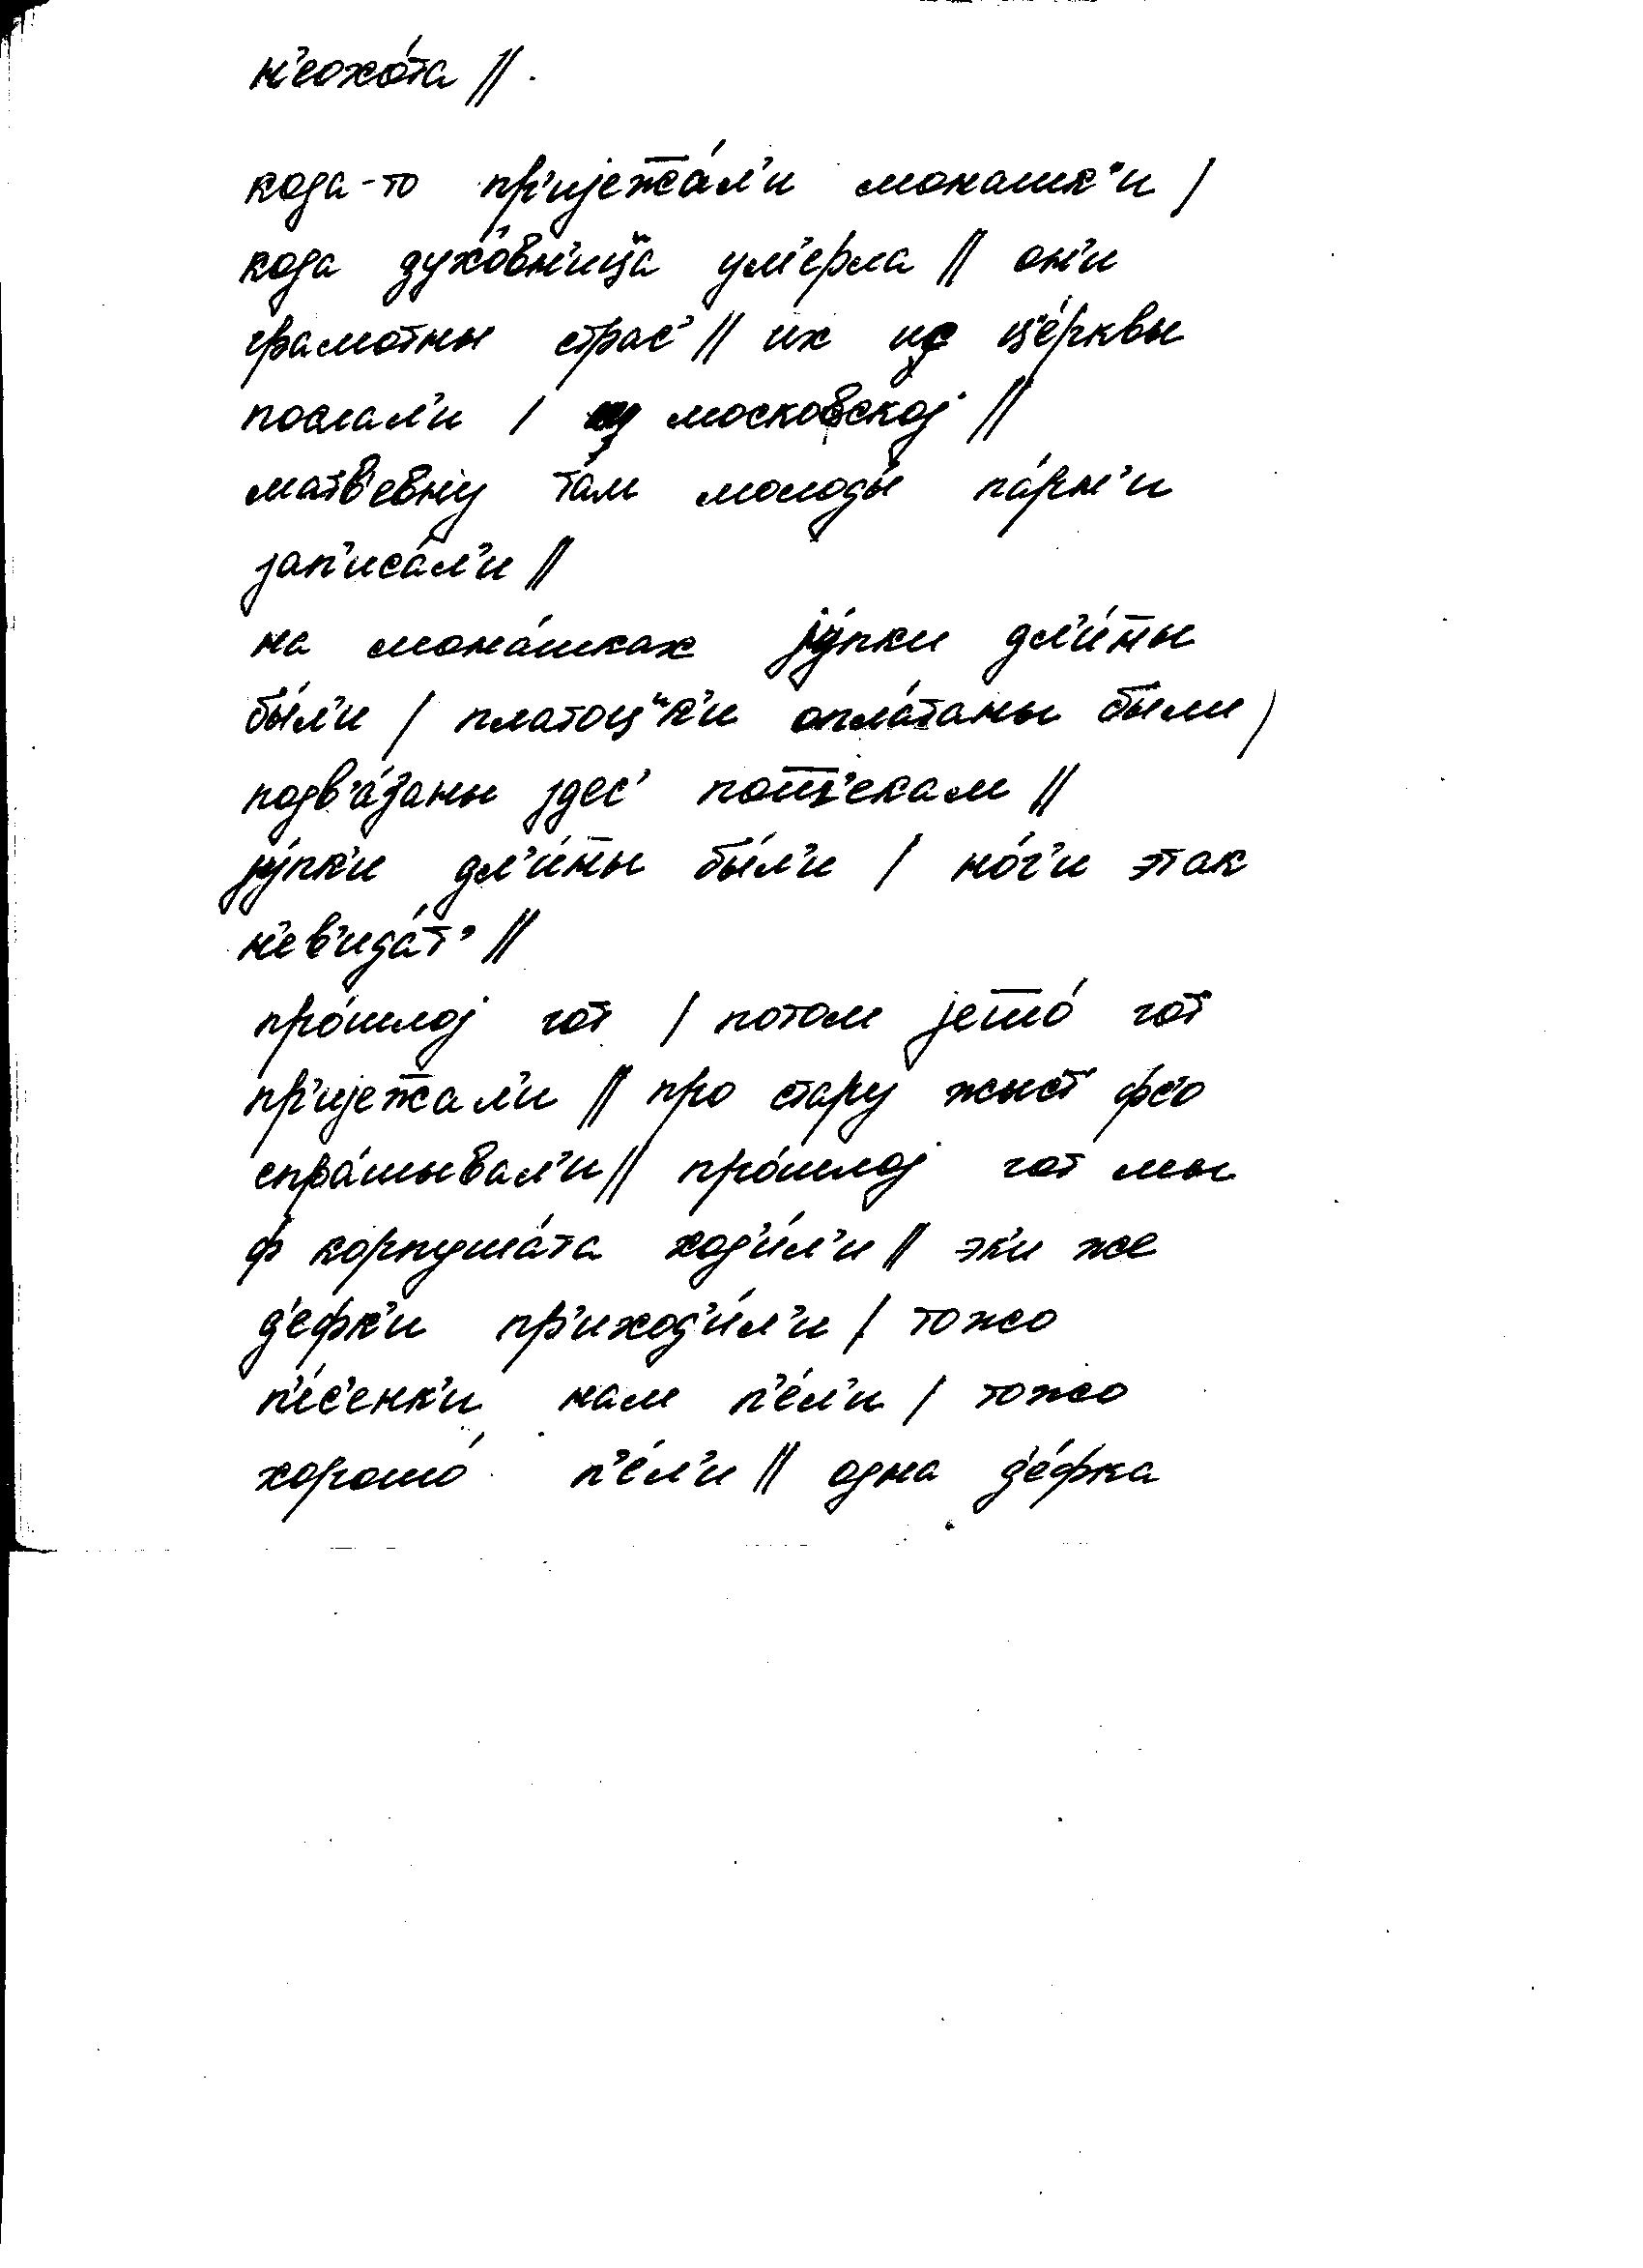 н'еохо́та //
кода-то пр'ијеж̅а́л'и монашк'и /
кода духо́вн'иц"а ум'ерла // он'и
грамотны страс' // их ис це́рквы
послал'и / из московској //
матв'евну там молоды́ па́рн'и
зап'иса́л'и //
на мона́шках јӱ́пки дл'и́н̅ы
бы́л'и / платоц"к'и опла́таны были /
подв'а́заны здес' пот̅ш'екам //
јӱ́пк'и дл'и́н̅ы бы́л'и / но́г'и этак
н'ев'ида́т' //
про́шлој гот / потом јеш̅о́ гот
пр'ијеж̅ал'и // про стару жыст' фс'о
спра́шывал'и // про́шлој гот мы
ф корпуша́та ход'и́л'и // эк'и же
д'ефк'и пр'иход'и́л'и / тожо
п'е́с'енк'и нам п'е́л'и / тожо
хорошо́ п'е́л'и // одна д'е́фка